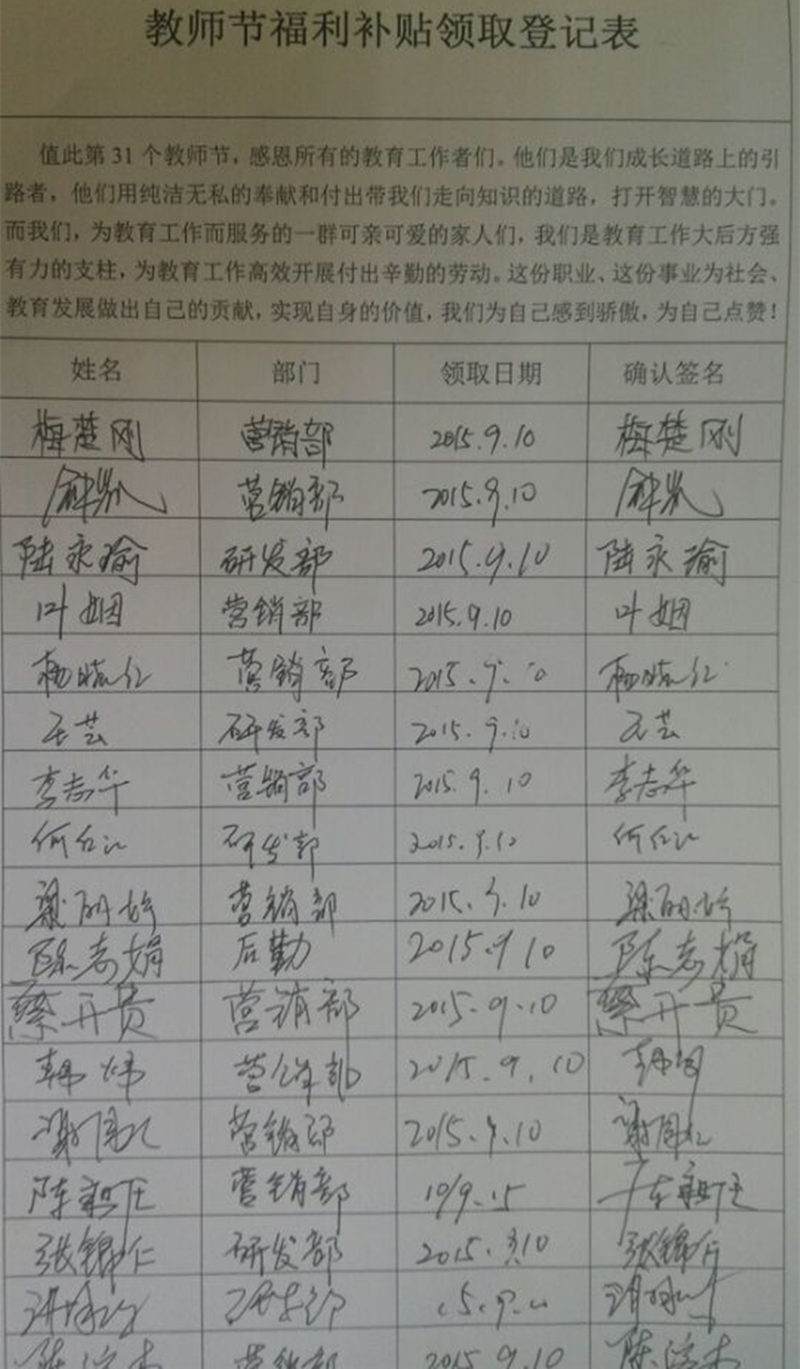 教师节福利补贴领取登记表
值此第31个教师节，感恩所有的教育工作者们。他们是我们成长道路上的引
路者，他们用纯洁无私的奉献和付出带我们走向知识的道路，打开智慧的大门。
而我们，为教育工作而服务的一群可亲可爱的家人们，我们是教育工作大后方强
有力的支柱，为教育工作高效开展付出辛勤的劳动。这份职业、这份事业为社会、
教育发展做出自己的贡献，实现自身的价值，我们为自己感到骄傲，为自己点赞！
姓名 部门 领取日期 确认签名
梅楚刚 营销部 2015.9.10 梅楚刚
营销部 2015.9.10
陆永瑜 研发部 2015.9.10 陆永瑜
叶姻 营销部 2015.9.10 叶姻
营销部 2015.9.10
王芸 研发部 2015.9.10 王芸
李志华 营销部 2015.9.10 李志华
研发部 2015.9.10
营销部 2015.9.10
陈志娟 后勤 2015.9.10 陈志娟
蔡开贵 营销部 2015.9.10 蔡开贵
韩炜 营销部 2015.9.10
营销部 2015.9.10
营销部 10/9.15
张锦仁 研发部 2015.9.10 张锦仁
营销部 2015.9.10